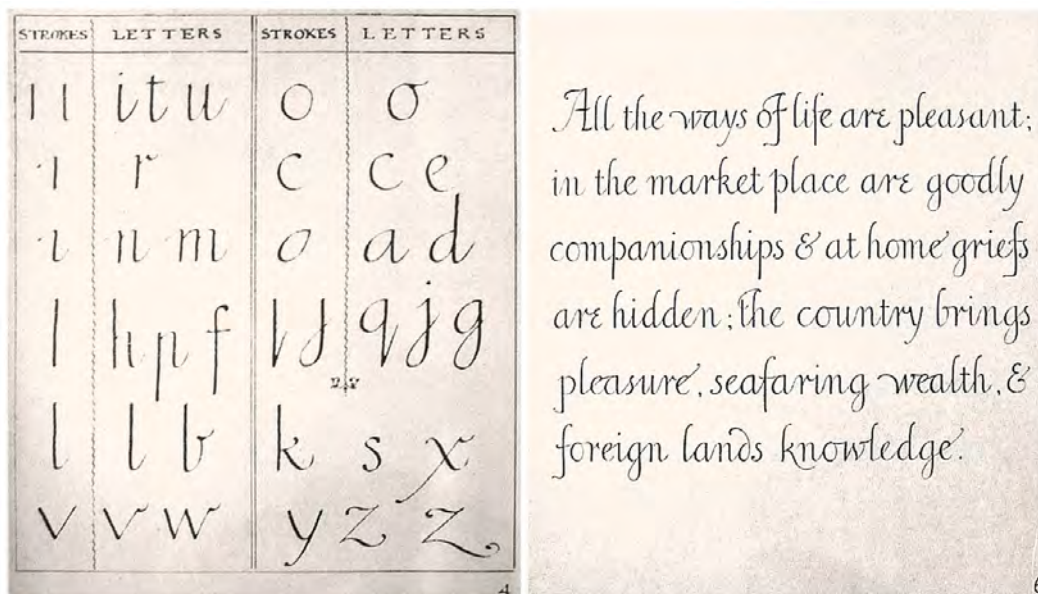 STROKES LETTERS STROKES LETTERS
ı ı i t u o o
ı r c c e
ı n m o a d
l h p f l J q j g
l l b k s x
v v w y z z
4
All the ways of life are pleasant;
in the market place are goodly
companionships & at home griefs
are hidden; the country brings
pleasure, seafaring wealth, &
foreign lands knowledge.
6